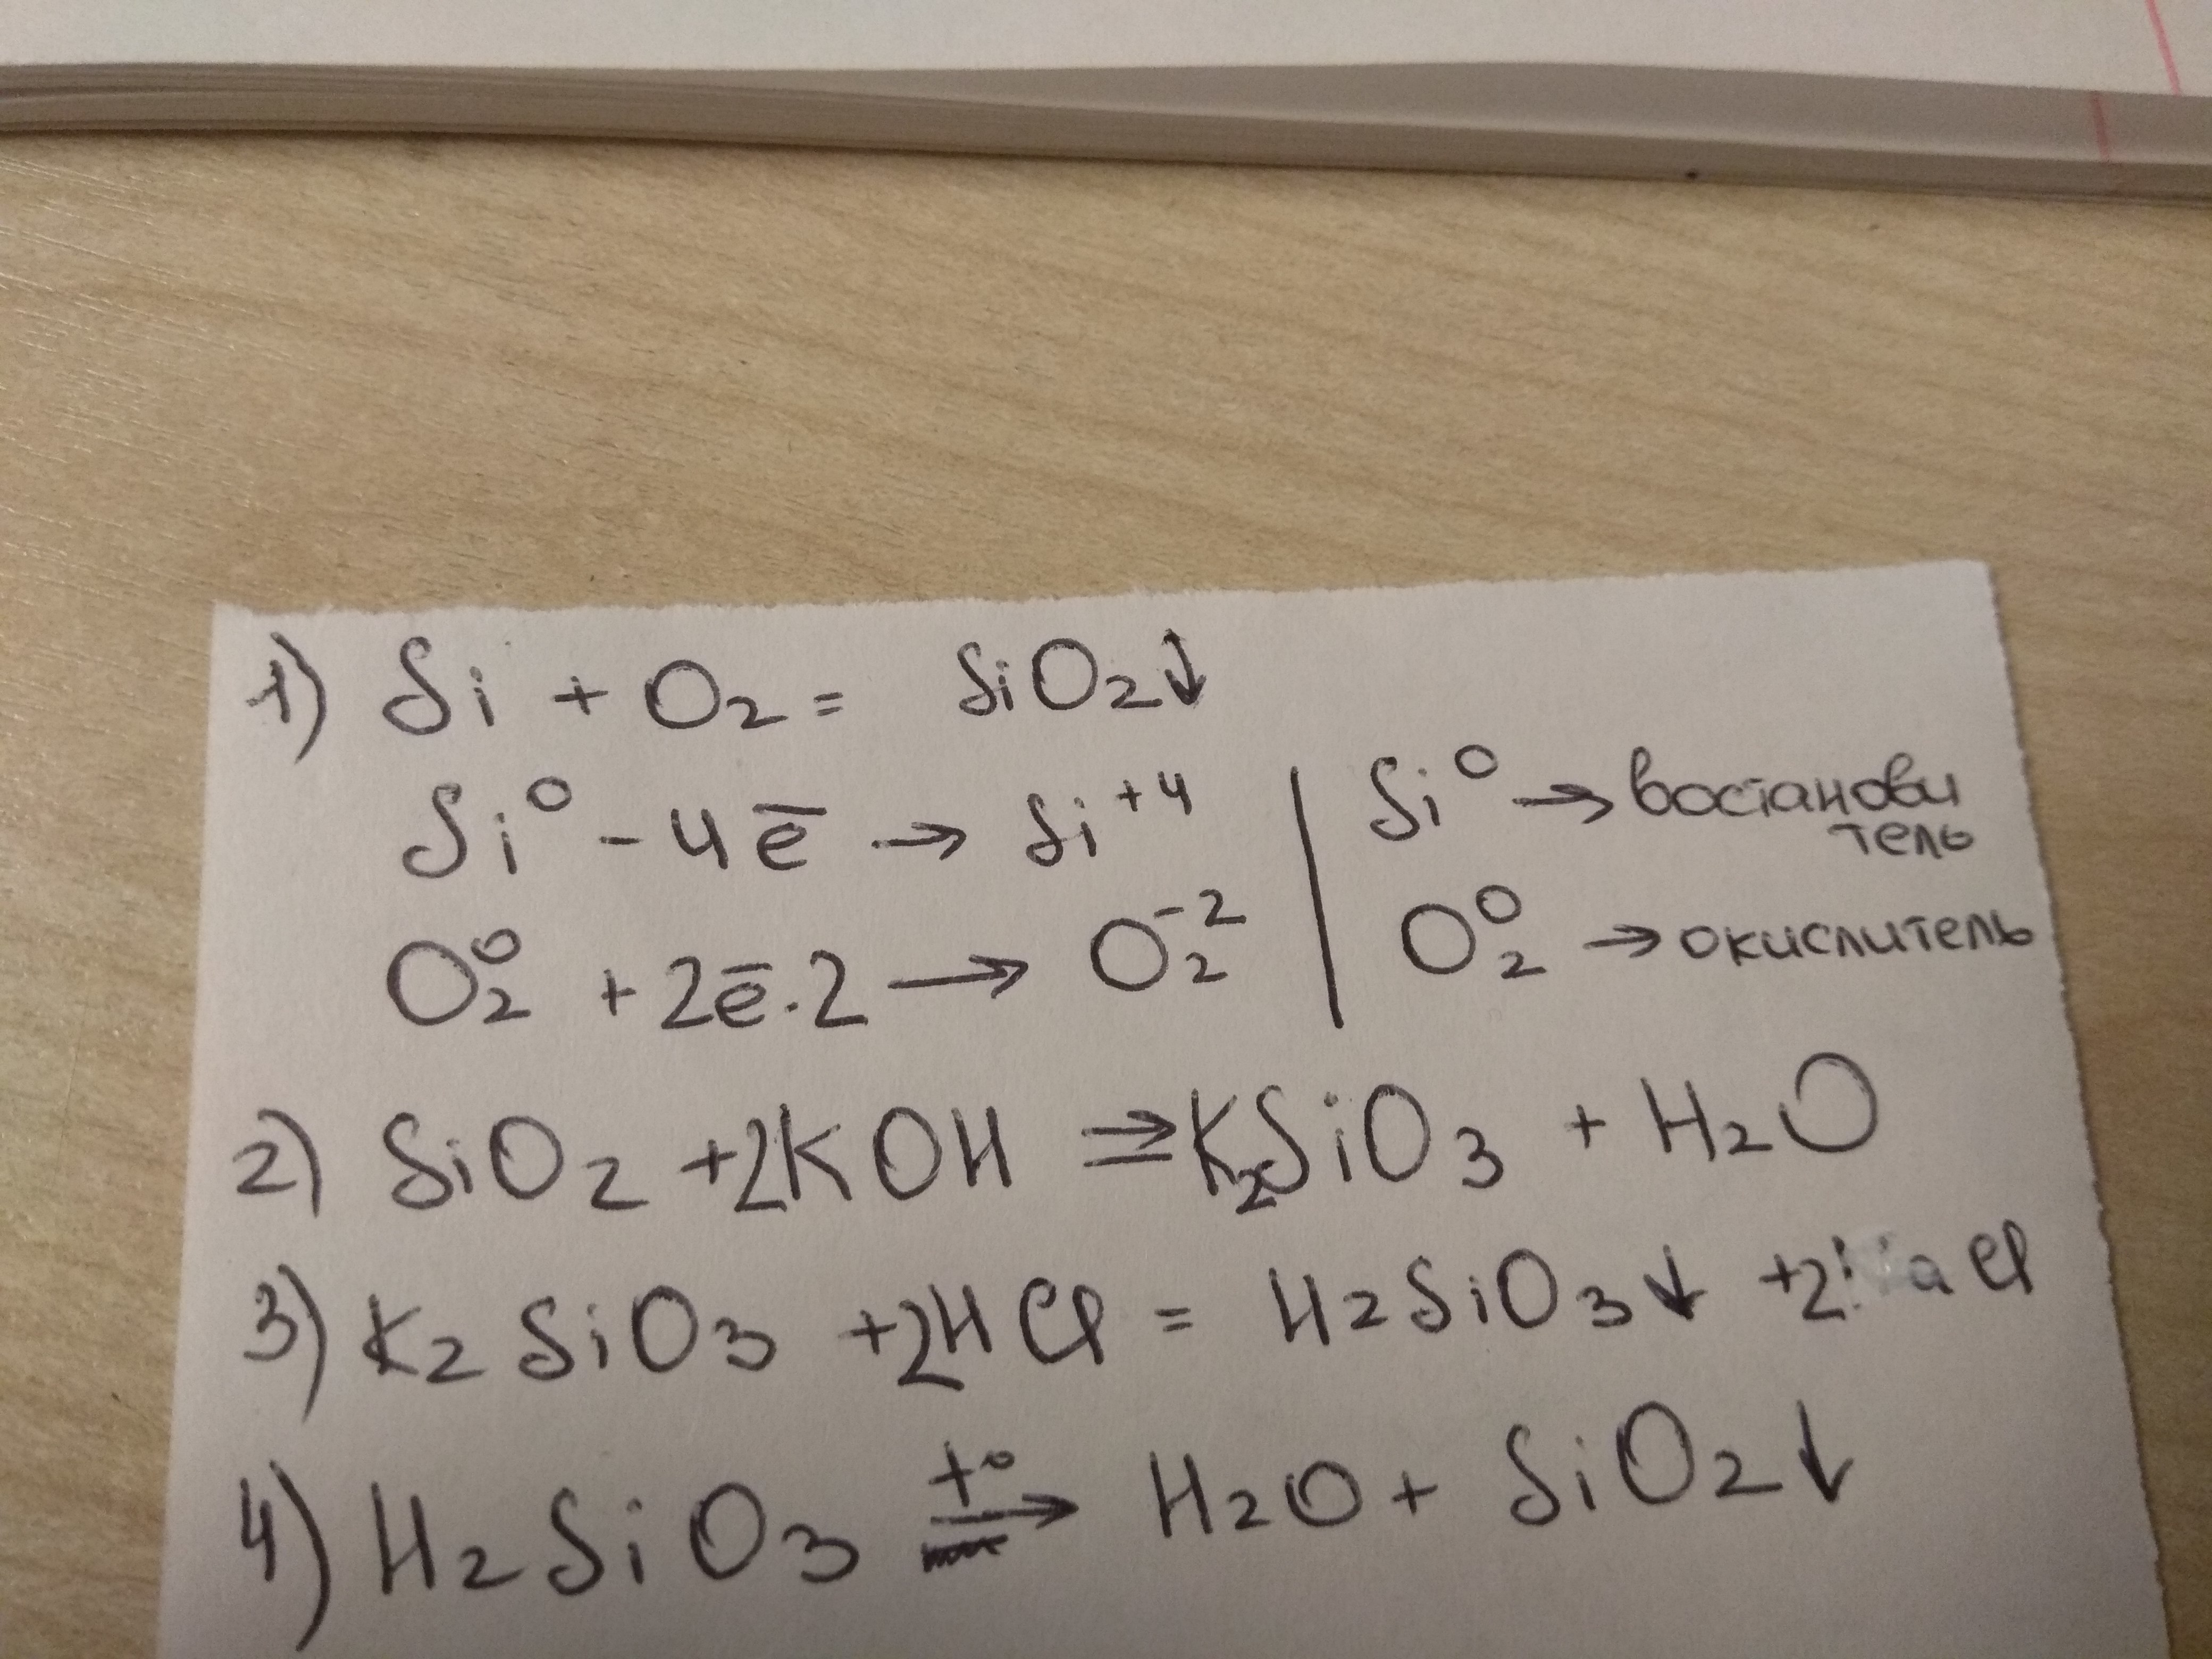 1) Si + O₂ = SiO₂↓
Si⁰ - 4ē → Si⁺⁴ | Si⁰ → востанови
тель
O₂⁰ + 2ē·2 → O₂⁻² | O₂⁰ → окислитель
2) SiO₂ +2KOH ⇒ K₂SiO₃ + H₂O
3) K₂SiO₃ +2HCl = H₂SiO₃↓ +2 aCl
4) H₂SiO₃ t° → H₂O + SiO₂↓